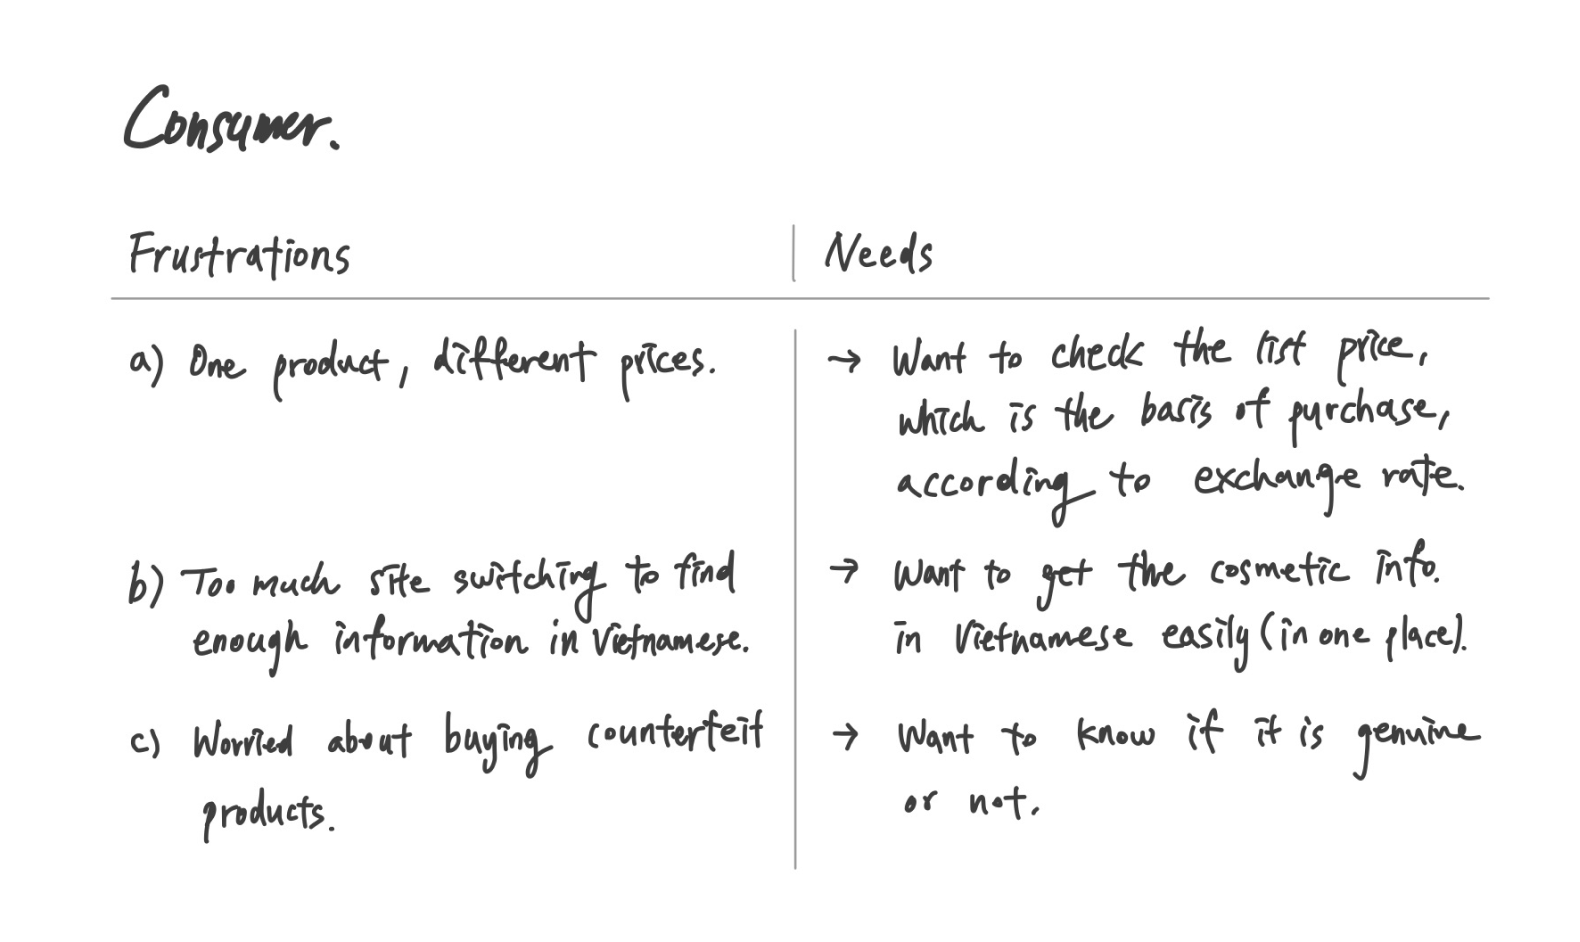 Consumer.
Frustrations
Needs
a) One product, different prices.
→ Want to check the list price,
which is the basis of purchase,
according to exchange rate.
b) Too much site switching to find
enough information in Vietnamese.
→ Want to get the cosmetic info.
in Vietnamese easily (in one place).
c) Worried about buying counterfeit
products.
→ Want to know if it is genuine
or not.